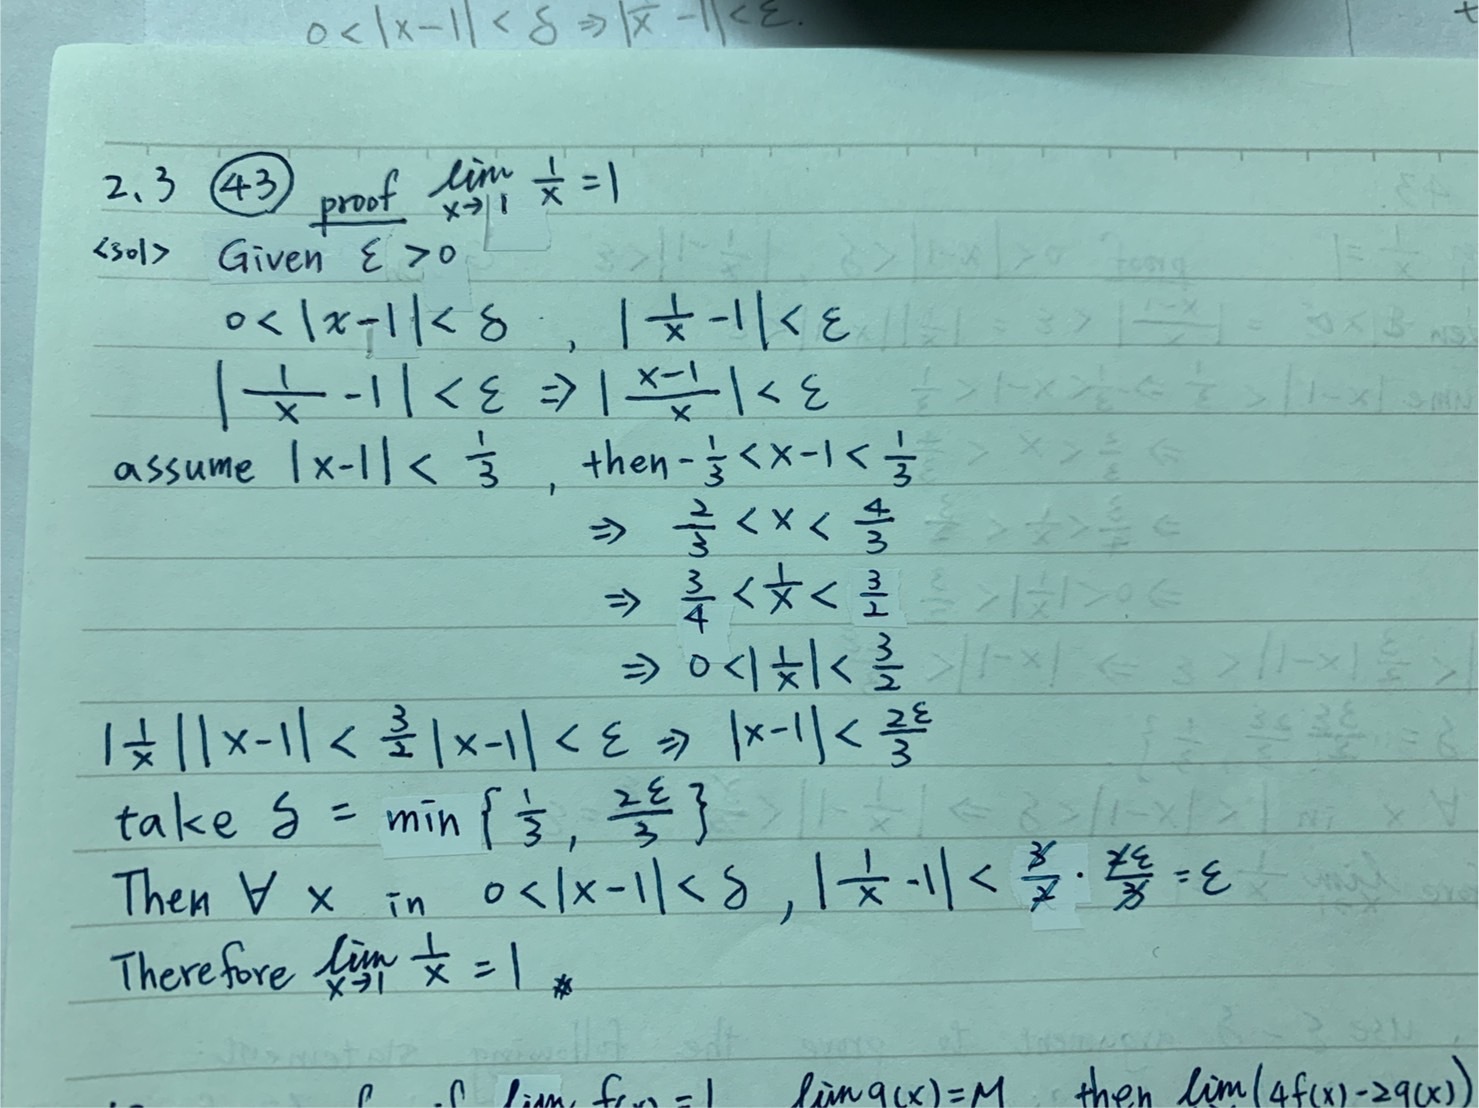 0<|x-1|<δ ⇒ |1/x -1|<ε.
2.3 (43) proof lim x→1 1/x =1
<sol> Given ε>0
0<|x-1|<δ , |1/x -1|<ε
|1/x -1|<ε ⇒ |(x-1)/x|<ε
assume |x-1|<1/3 , then -1/3<x-1<1/3
⇒ 2/3<x<4/3
⇒ 3/4<1/x<3/2
⇒ 0<|1/x|<3/2
|1/x||x-1|<3/2|x-1|<ε ⇒ |x-1|<2ε/3
take δ = min{1/3, 2ε/3}
Then ∀ x in 0<|x-1|<δ , |1/x -1|<3/2 · 2ε/3 =ε
Therefore lim x→1 1/x =1 *
lim g(x)=M then lim(4f(x)-2g(x))